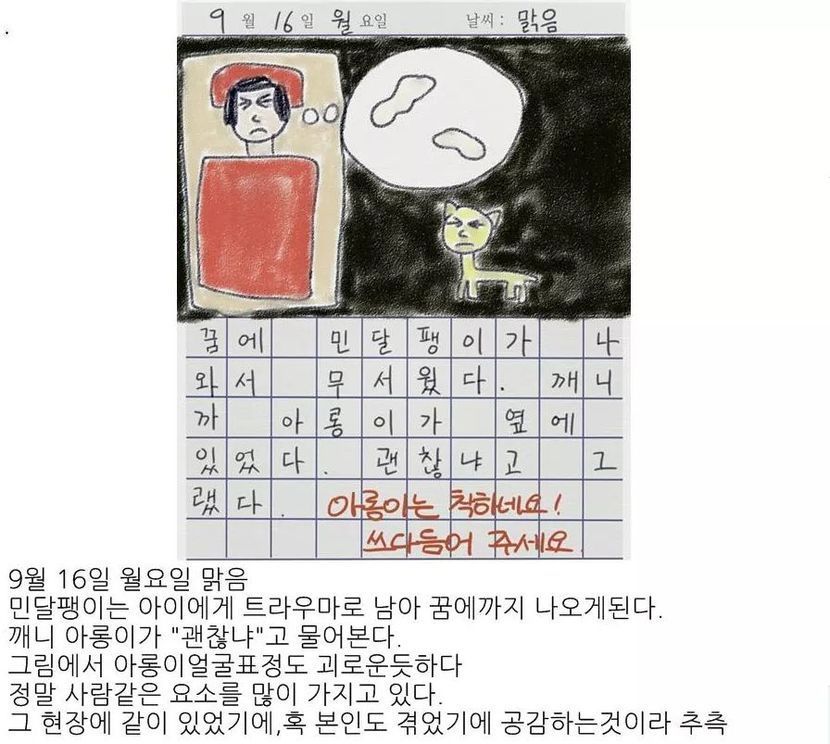 9 월 16 일 월 요일 날씨 : 맑음
꿈에 민달팽이가 나
와서 무서웠다. 깨니
까 아롱이가 옆에
있었다. 괜찮냐고 그
랬다. 아롱이는 착하네요!
쓰다듬어 주세요.
9월 16일 월요일 맑음
민달팽이는 아이에게 트라우마로 남아 꿈에까지 나오게된다.
깨니 아롱이가 "괜찮냐"고 물어본다.
그림에서 아롱이얼굴표정도 괴로운듯하다
정말 사람같은 요소를 많이 가지고 있다.
그 현장에 같이 있었기에,혹 본인도 겪었기에 공감하는것이라 추측